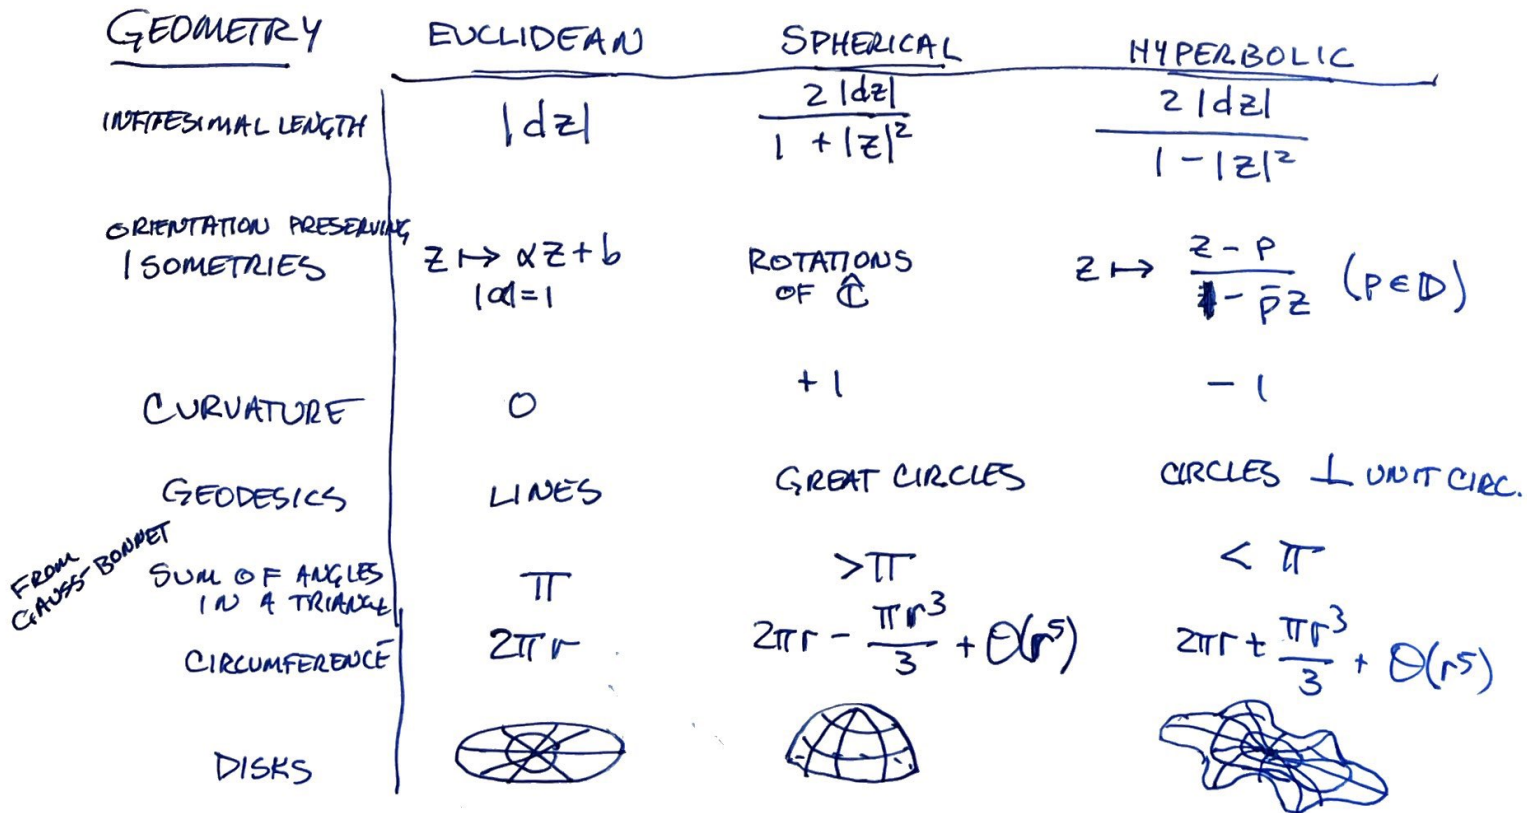 GEOMETRY EUCLIDEAN SPHERICAL HYPERBOLIC
INFITESIMAL LENGTH |dz| 2|dz| / 1 + |z|² 2|dz| / 1 - |z|²
ORIENTATION PRESERVING
ISOMETRIES z ↦ αz + b ROTATIONS z ↦ z - p / 1 - p̄z (p ∈ 𝔻)
|α| = 1 OF Ĉ
CURVATURE 0 +1 -1
GEODESICS LINES GREAT CIRCLES CIRCLES ⊥ UNIT CIRC.
FROM
GAUSS-BONNET
SUM OF ANGLES
IN A TRIANGLE π >π < π
CIRCUMFERENCE 2πr 2πr - πr³/3 + O(r⁵) 2πr + πr³/3 + O(r⁵)
DISKS